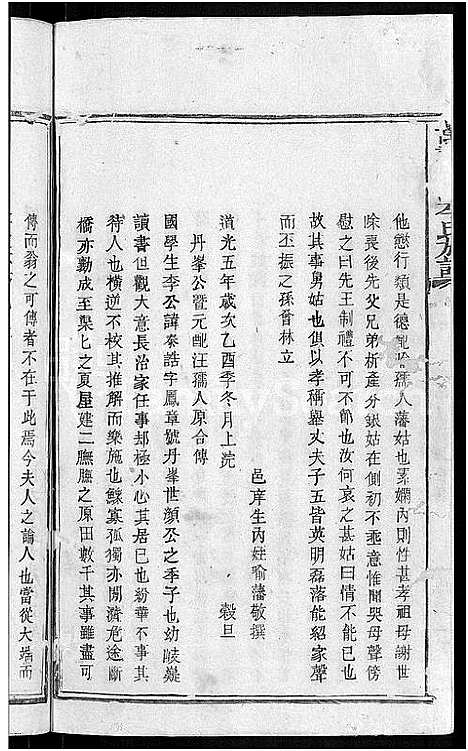 李氏族譜
他懿行類是德配喻孺人藩姑也素嫻內則性甚孝祖母謝世
除喪後先父兄弟析產分銀姑在側初不垂意惟聞哭母聲傍
慰之曰先王制禮不可不節也汝何哀之甚姑曰情不可抑
故其事舅姑也俱以孝稱舉丈夫子五皆英明磊落能紹家聲
而丕振之孫曾林立
邑庠生內姪喻藩敬撰
道光五年歲次乙酉季冬月上浣 穀旦
丹峯公暨元配汪孺人原合傳
國學生李公諱泰誥字鳳章號丹峯世顔公之季子也幼岐嶷
讀書但觀大意長治家任事却極小心其居已也紛華不事其
待人也橫逆不校其推解而樂施也鰥寡孤獨亦閒濟危途斷
橋亦勷成至渠匕之夏屋建二膴膴之原田數千其事雖盡可
傳而翁之可傳者不在于此焉今夫人之論人也當從大端而